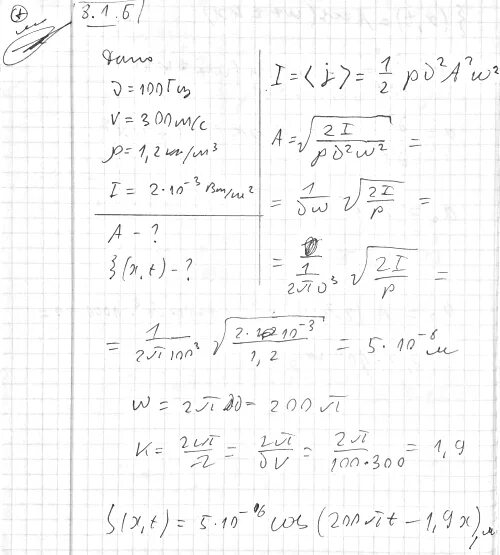 3.1.5
Дано
ν = 100 Гц
V = 300 м/с
ρ = 1,2 кг/м³
I = 2·10⁻³ Вт/м²
A - ?
ξ(x,t) - ?
I = <j> = 1/2 ρ υ² A² ω²
A = √(2I / ρ υ² ω²) =
= 1/υω √(2I/ρ) =
= 1/2πυ³ √(2I/ρ) =
= 1/2π100³ √(2·2·10⁻³ / 1,2) = 5·10⁻⁶ м
ω = 2πν = 200π
K = 2π/λ = 2π/υV = 2π/100·300 = 1,9
ξ(x,t) = 5·10⁻⁶ cos(200πt - 1,9x), м